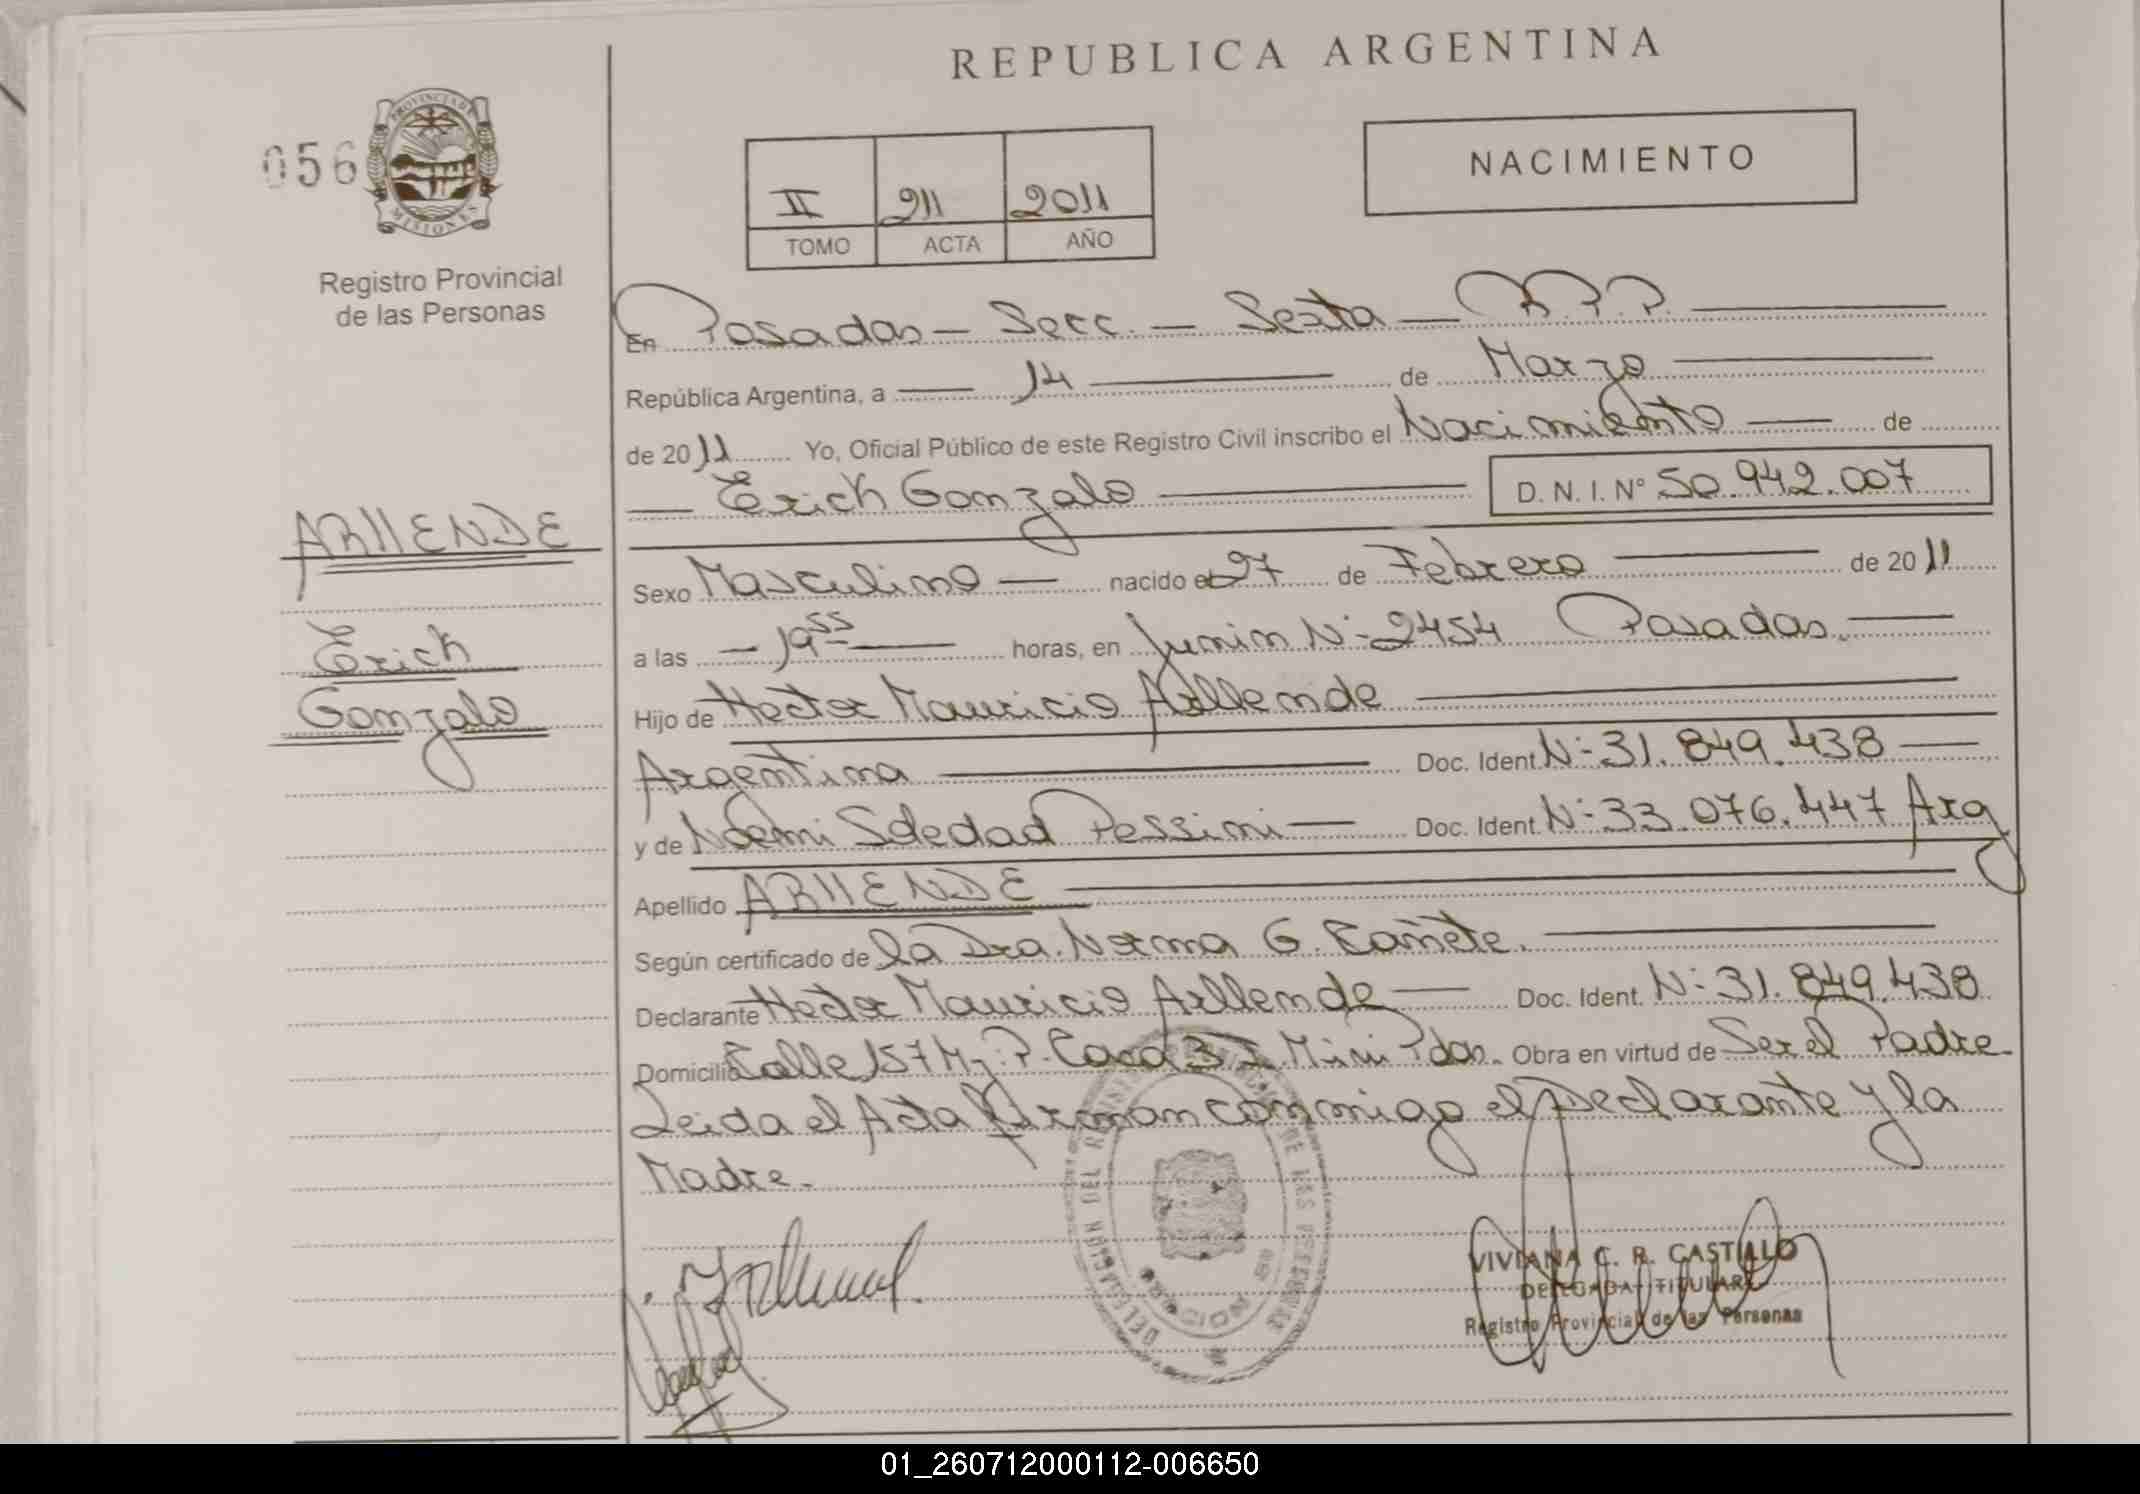 REPUBLICA ARGENTINA
056
PROVINCIA DE
MISIONES
Registro Provincial
de las Personas
II 211 2011
TOMO ACTA AÑO
NACIMIENTO
En Posadas — Secc. — Sexta — R.P.P.
República Argentina, a — 14 — de Marzo
de 2011 Yo, Oficial Público de este Registro Civil inscribo el Nacimiento — de
— Erich Gonzalo — D. N. I. Nº 50.942.007
ARLLENDE
Erich
Gonzalo
Sexo Masculino — nacido el 27 de Febrero — de 2011
a las — 19 55 — horas, en Junin Nº 2454 Posadas. —
Hijo de Hector Mauricio Arllende —
Argentina — Doc. Ident. Nº 31.849.438 —
y de Noemi Soledad Pessini — Doc. Ident. Nº 33.076.447 Arg
Apellido ARLLENDE —
Según certificado de la Dra. Norma G. Cañete. —
Declarante Hector Mauricio Arllende — Doc. Ident. Nº 31.849.438
Domicilio Calle 157 Mz. P. Casa 3 Mini Pdas. Obra en virtud de Ser el Padre.
Leida el Acta firman conmigo el Declarante y la
Madre.
VIVIANA C. R. CASTILLO
DELEGADA TITULAR
Registro Provincial de las Personas
01_260712000112-006650